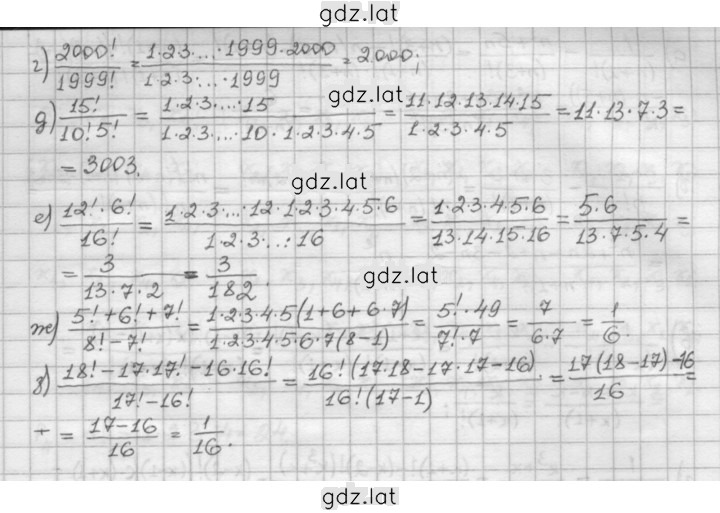 gdz.lat
г) 2000!/1999! = 1·2·3·...·1999·2000/1·2·3·...·1999 = 2000;
gdz.lat
д) 15!/10!5! = 1·2·3·...·15/1·2·3·...·10·1·2·3·4·5 = 11·12·13·14·15/1·2·3·4·5 = 11·13·7·3 =
= 3003.
gdz.lat
е) 12!·6!/16! = 1·2·3·...·12·1·2·3·4·5·6/1·2·3·...·16 = 1·2·3·4·5·6/13·14·15·16 = 5·6/13·7·5·4 =
= 3/13·7·2 = 3/182.
gdz.lat
ж) 5!+6!+7!/8!-7! = 1·2·3·4·5(1+6+6·7)/1·2·3·4·5·6·7(8-1) = 5!·49/7!·7 = 7/6·7 = 1/6
з) 18!-17·17!-16·16!/17!-16! = 16!(17·18-17·17-16)/16!(17-1) = 17(18-17)-16/16 =
= 17-16/16 = 1/16.
gdz.lat